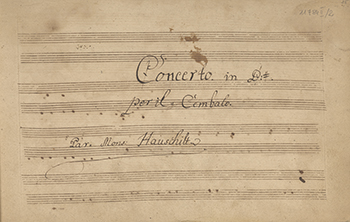 Concerto. in D#.
per il Cembalo.
Par. Mons. Hauschitz